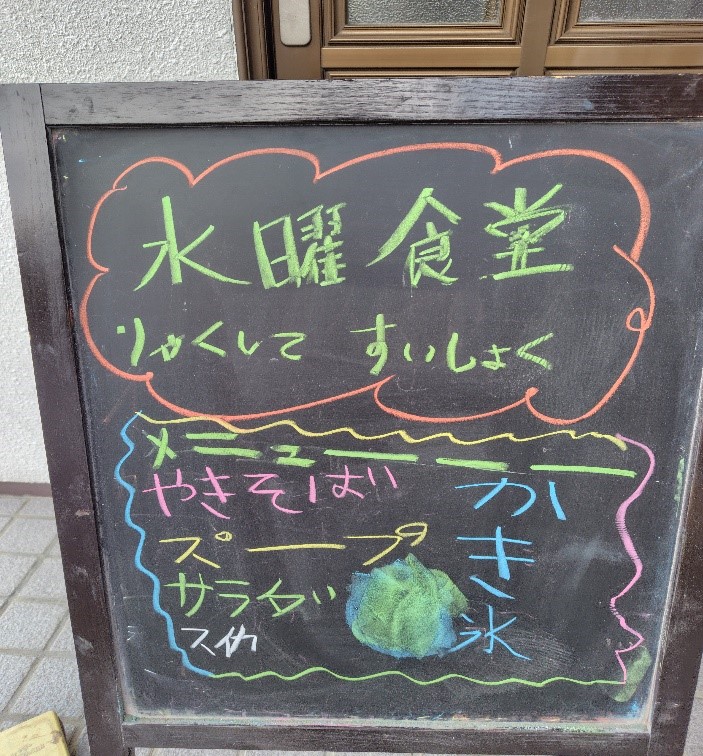 水曜食堂
りゃくして すいしょく
メニュー
やきそば
スープ
サラダ
スイカ
かき氷